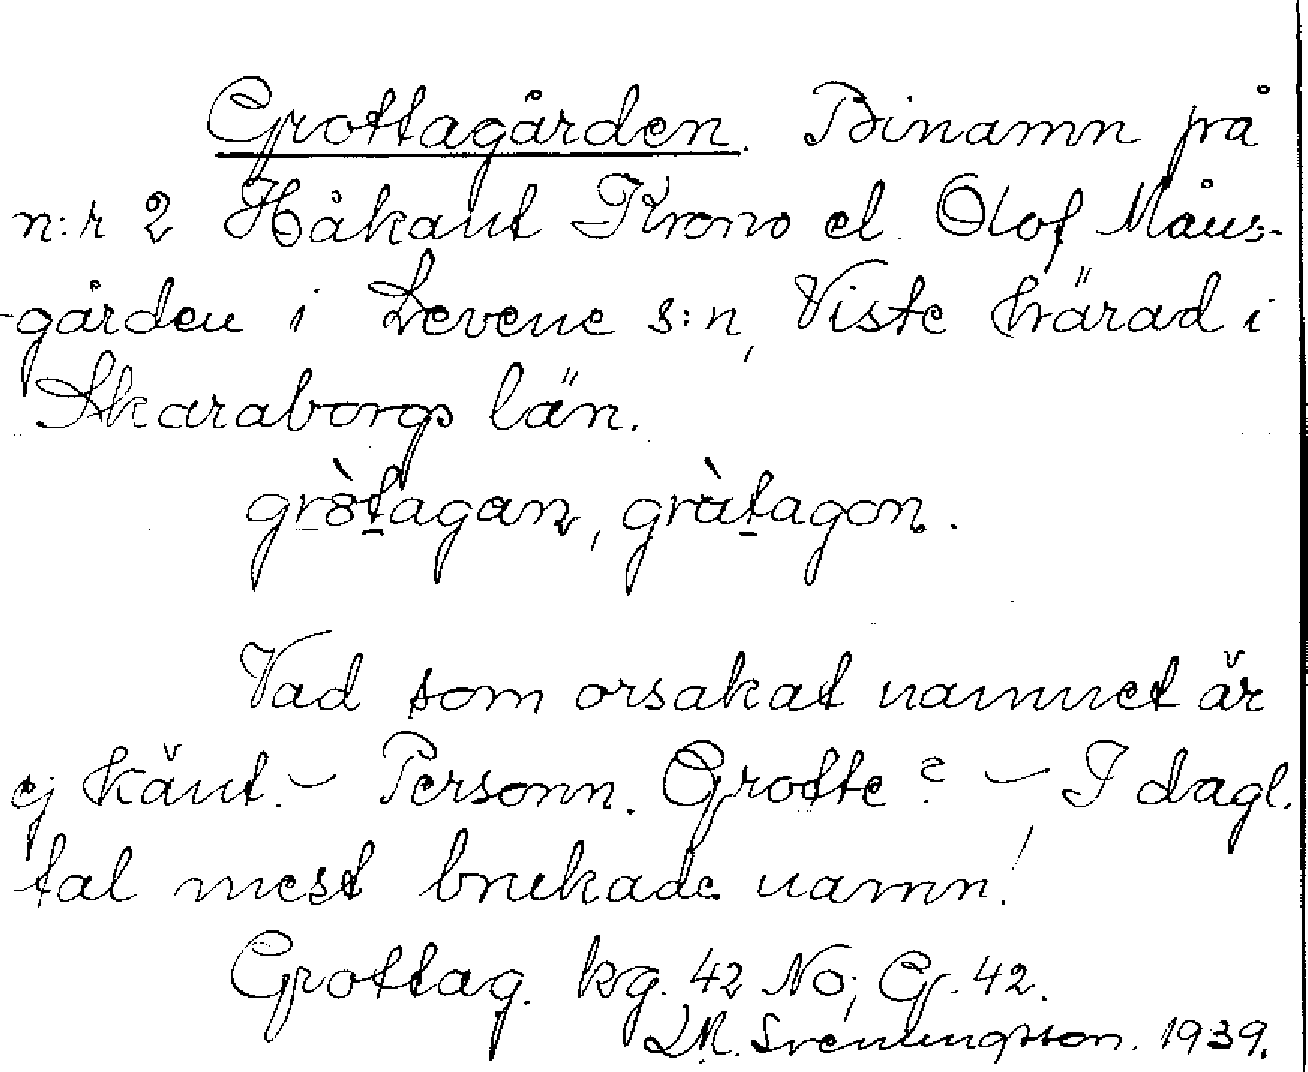 Grottagården. Binamn på
n:r 2 Håkant Krono el. Olof Måns-
-gården i Levene s:n, Viste härad i
Skaraborgs län.
grò̱ṯagan, gràṯagon.
Vad som orsakat namnet är
ej känt. – Personn. Grotte? – I dagl.
tal mest brukade namn!
Grottag. kg. 42 No; Gr. 42.
Svenungsson. 1939.